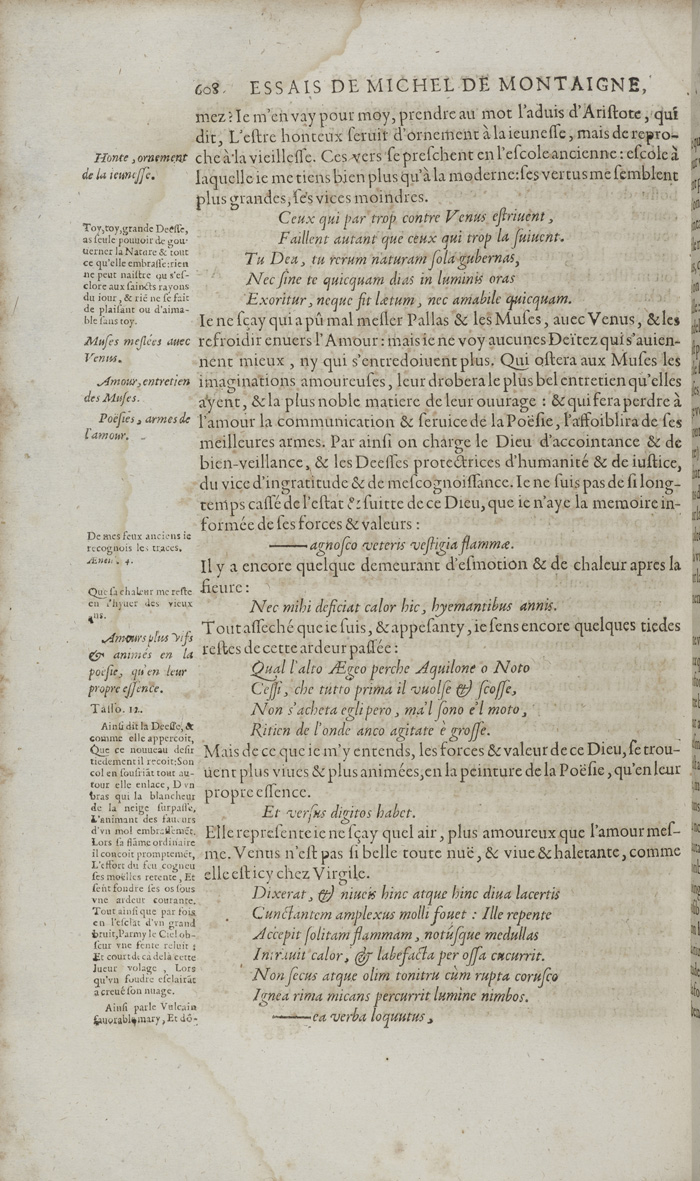 608. ESSAIS DE MICHEL DE MONTAIGNE,
mez? Ie m'en vay pour moy, prendre au mot l'aduis d'Ariſtote, qui
dit, L'eſtre honteux ſeruit d'ornement à la ieuneſſe, mais de repro-
che à la vieilleſſe. Ces vers ſe preſchent en l'eſcole ancienne: eſcole à
laquelle ie me tiens bien plus qu'à la moderne: ſes vertus me ſemblent
plus grandes, ſes vices moindres.
Ceux qui par trop contre Venus eſtriuent,
Faillent autant que ceux qui trop la ſuiuent.
Tu Dea, tu rerum naturam ſola gubernas,
Nec ſine te quicquam dias in luminis oras
Exoritur, neque fit lætum, nec amabile quicquam.
Ie ne ſçay qui a pû mal meſler Pallas & les Muſes, auec Venus, & les
refroidir enuers l'Amour: mais ie ne voy aucunes Deïtez qui s'auien-
nent mieux, ny qui s'entredoiuent plus. Qui oſtera aux Muſes les
imaginations amoureuſes, leur drobera le plus bel entretien qu'elles
ayent, & la plus noble matiere de leur ouurage: & qui fera perdre à
l'amour la communication & ſeruice de la Poëſie, l'affoiblira de ſes
meilleures armes. Par ainſi on charge le Dieu d'accointance & de
bien-veillance, & les Deeſſes protectrices d'humanité & de iuſtice,
du vice d'ingratitude & de meſcognoiſſance. Ie ne ſuis pas de ſi long-
temps caſſé de l'eſtat & ſuitte de ce Dieu, que ie n'aye la memoire in-
formée de ſes forces & valeurs:
——agnoſco veteris veſtigia flammæ.
Il y a encore quelque demeurant d'eſmotion & de chaleur apres la
fieure:
Nec mihi deficiat calor hic, hyemantibus annis.
Tout aſſeché que ie ſuis, & appeſanty, ie ſens encore quelques tiedes
reſtes de cette ardeur paſſée:
Qual l'alto Ægeo perche Aquilone o Noto
Ceſſi, che tutto prima il vuolſe & ſcoſſe,
Non s'acheta egli pero, ma'l ſono e'l moto,
Ritien de l'onde anco agitate è groſſe.
Mais de ce que ie m'y entends, les forces & valeur de ce Dieu, ſe trou-
uent plus viues & plus animées, en la peinture de la Poëſie, qu'en leur
propre eſſence.
Et verſus digitos habet.
Elle repreſente ie ne ſçay quel air, plus amoureux que l'amour meſ-
me. Venus n'eſt pas ſi belle toute nuë, & viue & haletante, comme
elle eſt icy chez Virgile.
Dixerat, & niueis hinc atque hinc diua lacertis
Cunctantem amplexus molli fouet: Ille repente
Accepit ſolitam flammam, notúſque medullas
Intrauit calor, & labefacta per oſſa cucurrit.
Non ſecus atque olim tonitru cùm rupta coruſco
Ignea rima micans percurrit lumine nimbos.
——ea verba loquutus,
Honte, ornement
de la ieuneſſe.
Toy, toy, grande Deeſſe,
as ſeule pouuoir de gou-
uerner la Nature & tout
ce qu'elle embraſſe: rien
ne peut naiſtre ou s'eſ-
clore aux ſaincts rayons
du iour, & riē ne ſe fait
de plaiſant ou d'aima-
ble ſans toy.
Muſes meſlées auec
Venus.
Amour, entretien
des Muſes.
Poëſies, armes de
l'amour.
De mes feux anciens ie
recognois les traces.
Æneid. 4.
Que ſa chaleur me reſte
en l'hyuer des vieux
ans.
Amours plus vifs
& animés en la
poëſie, qu'en leur
propre eſſence.
Taſſo. 12.
Ainſi dit la Deeſſe, &
comme elle apperçoit,
Que ce nouueau deſir
tiedement il reçoit: Son
col en ſouſriāt tout au-
tour elle enlace, D'vn
bras qui la blancheur
de la neige ſurpaſſe,
L'animant des faueurs
d'vn mol embraſſemēt,
Lors ſa flāme ordinaire
il conçoit promptemēt,
L'effort du feu cogneu
ſes moëlles retente, Et
ſent fondre ſes os ſous
vne ardeur courante.
Tout ainſi que par fois
en l'eſclat d'vn grand
bruit, Parmy le Ciel ob-
ſcur vne fente reluit;
Et court deçà delà cette
lueur volage, Lors
qu'vn foudre eſclairāt
a creué ſon nuage.
Ainſi parle Vulcain
fauorable mary, Et dō-